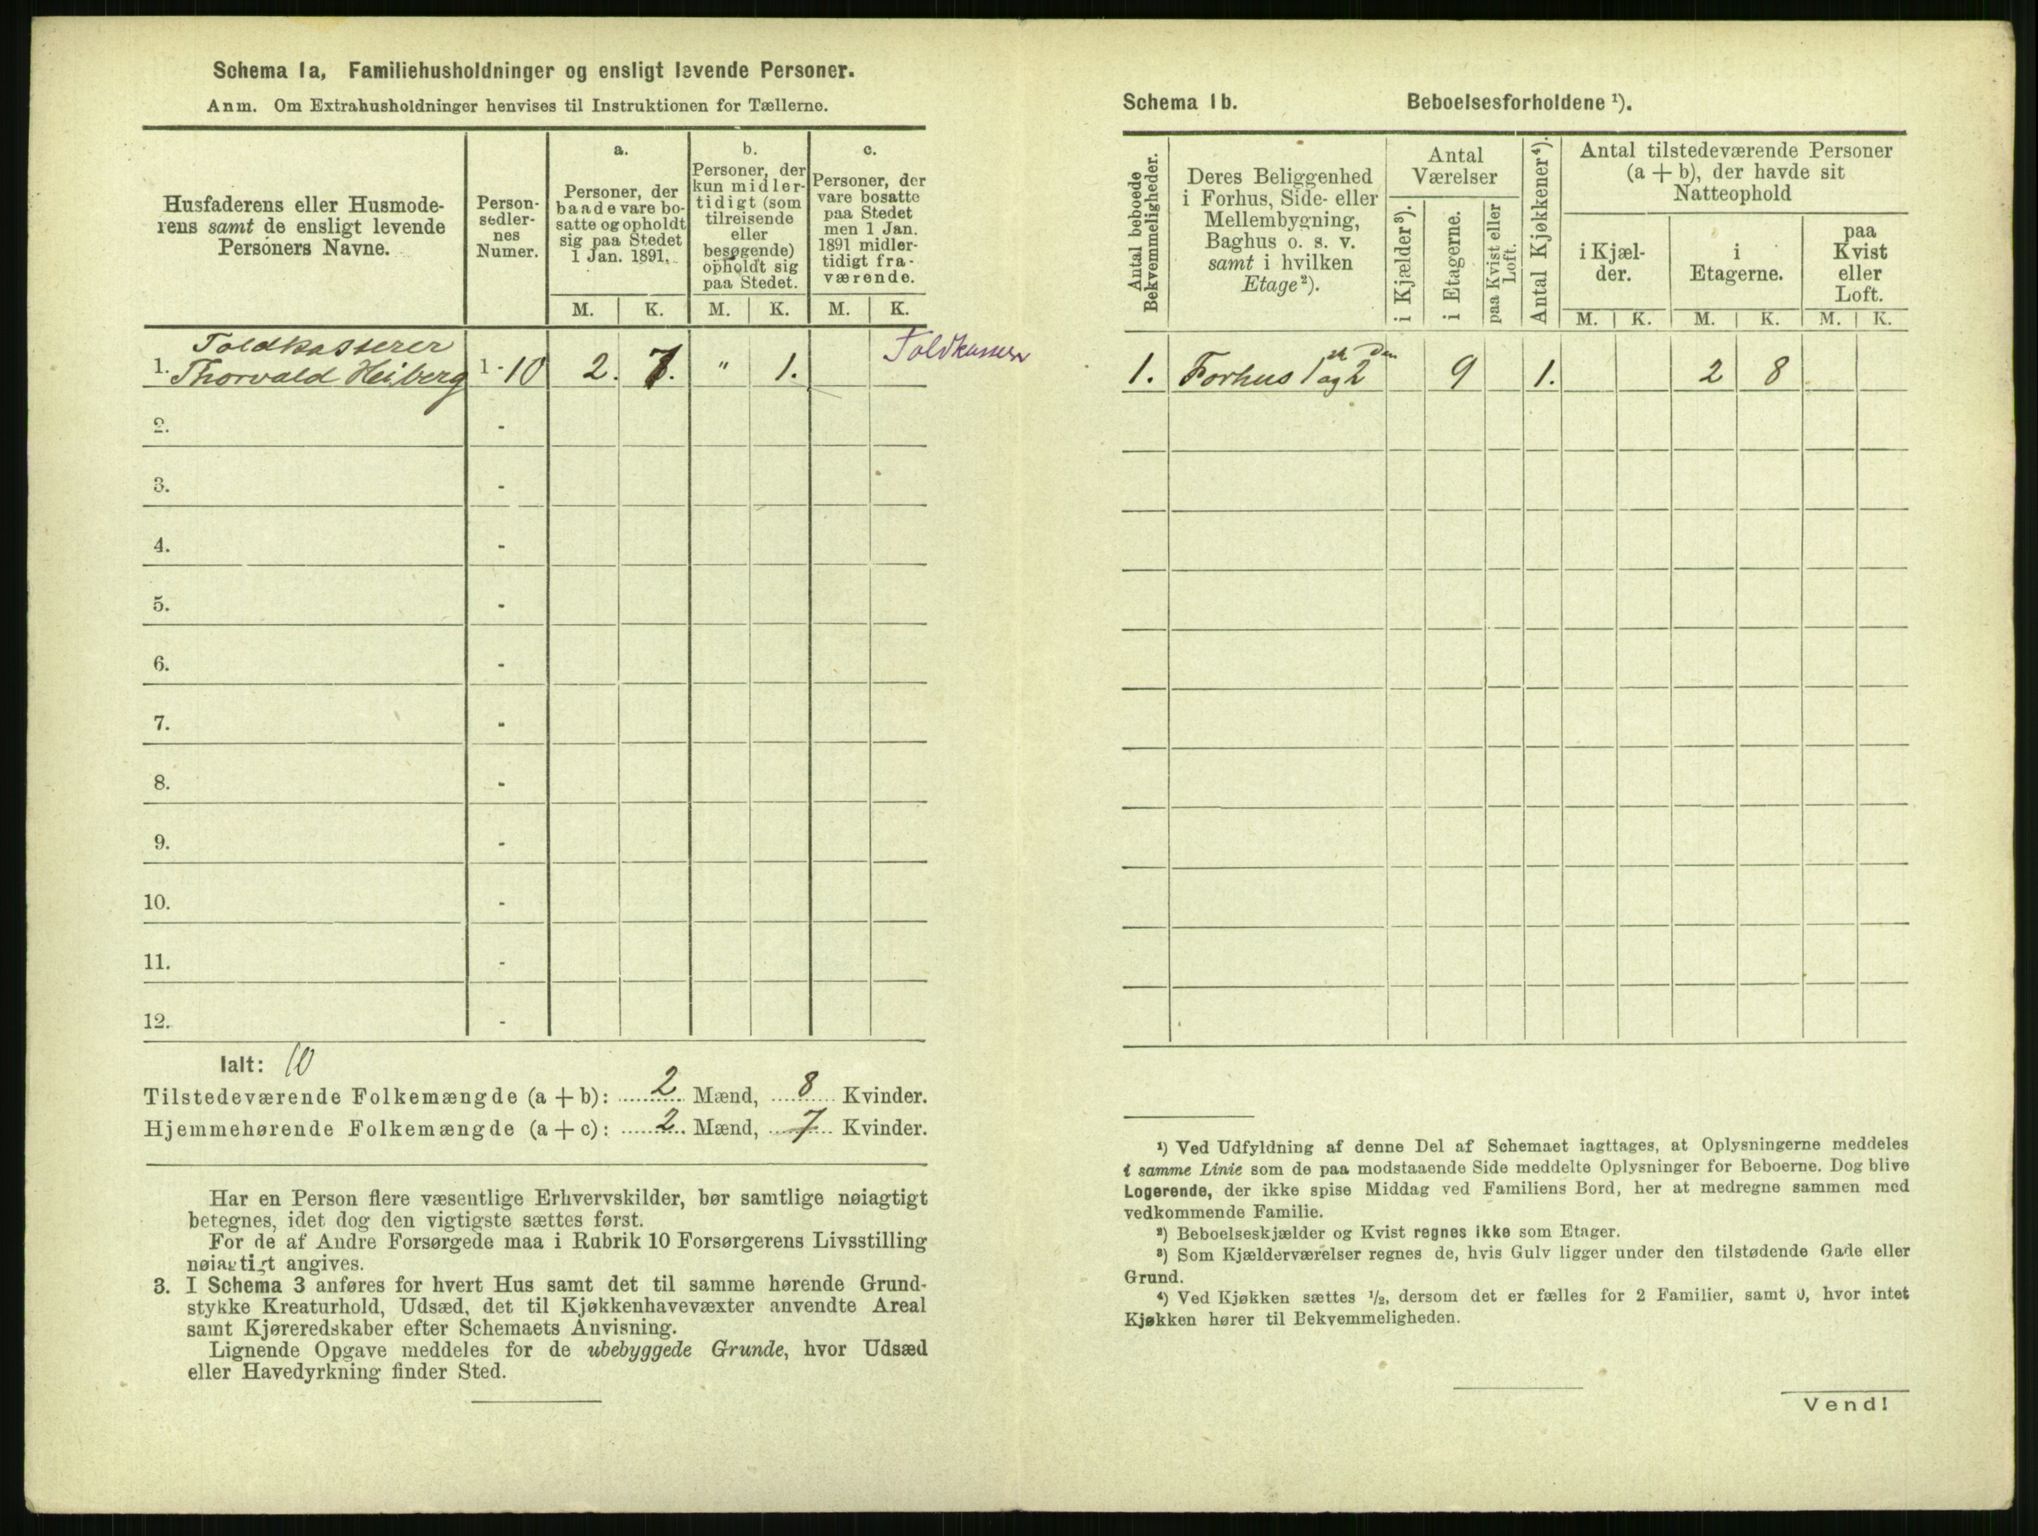 Schema 1a, Familiehusholdninger og ensligt levende Personer.
Anm. Om Extrahusholdninger henvises til Instruktionen for Tællerne.
Husfaderens eller Husmode-
rens samt de ensligt levende
Personers Navne.
Person-
sedler-
nes
Numer.
a.
Personer, der
baade vare bo-
satte og opholdt
sig paa Stedet
1 Jan. 1891.
b.
Personer, der
kun midler-
tidigt (som
tilreisende
eller
besøgende)
opholdt sig
paa Stedet.
c.
Personer, der
vare bosatte
paa Stedet
men 1 Jan.
1891 midler-
tidigt fra-
værende.
M. K. M. K. M. K.
Toldkasserer
1. Thorvald Heiberg 1 - 10 2. 7. " 1. Toldkasserer
2. -
3. -
4. -
5. -
6. -
7. -
8. -
9. -
10. -
11. -
12. -
Ialt: 10
Tilstedeværende Folkemængde (a + b): 2 Mænd, 8 Kvinder.
Hjemmehørende Folkemængde (a + c): 2 Mænd, 7 Kvinder.
Har en Person flere væsentlige Erhvervskilder, bør samtlige nøiagtigt
betegnes, idet dog den vigtigste sættes først.
For de af Andre Forsørgede maa i Rubrik 10 Forsørgerens Livsstilling
nøiagtigt angives.
3. I Schema 3 anføres for hvert Hus samt det til samme hørende Grund-
stykke Kreaturhold, Udsæd, det til Kjøkkenhavevæxter anvendte Areal
samt Kjøreredskaber efter Schemaets Anvisning.
Lignende Opgave meddeles for de ubebyggede Grunde, hvor Udsæd
eller Havedyrkning finder Sted.
Schema 1b. Beboelsesforholdene ¹).
Antal beboede
Bekvemmeligheder.
Deres Beliggenhed
i Forhus, Side- eller
Mellembygning,
Baghus o. s. v.
samt i hvilken
Etage²).
Antal
Værelser
i Kjælder³).
i Etagerne.
paa Kvist eller
Loft.
Antal Kjøkkener⁴).
Antal tilstedeværende Personer
(a + b), der havde sit
Natteophold
i Kjæl-
der.
i
Etagerne.
paa
Kvist
eller
Loft.
M. K. M. K. M. K.
1. Forhus 1 og 2den 9 1. 2 8
¹) Ved Udfyldning af denne Del af Schemaet iagttages, at Oplysningerne meddeles
i samme Linie som de paa modstaaende Side meddelte Oplysninger for Beboerne. Dog blive
Logerende, der ikke spise Middag ved Familiens Bord, her at medregne sammen med
vedkommende Familie.
²) Beboelseskjælder og Kvist regnes ikke som Etager.
³) Som Kjælderværelser regnes de, hvis Gulv ligger under den tilstødende Gade eller
Grund.
⁴) Ved Kjøkken sættes ½, dersom det er fælles for 2 Familier, samt 0, hvor intet
Kjøkken hører til Bekvemmeligheden.
Vend!